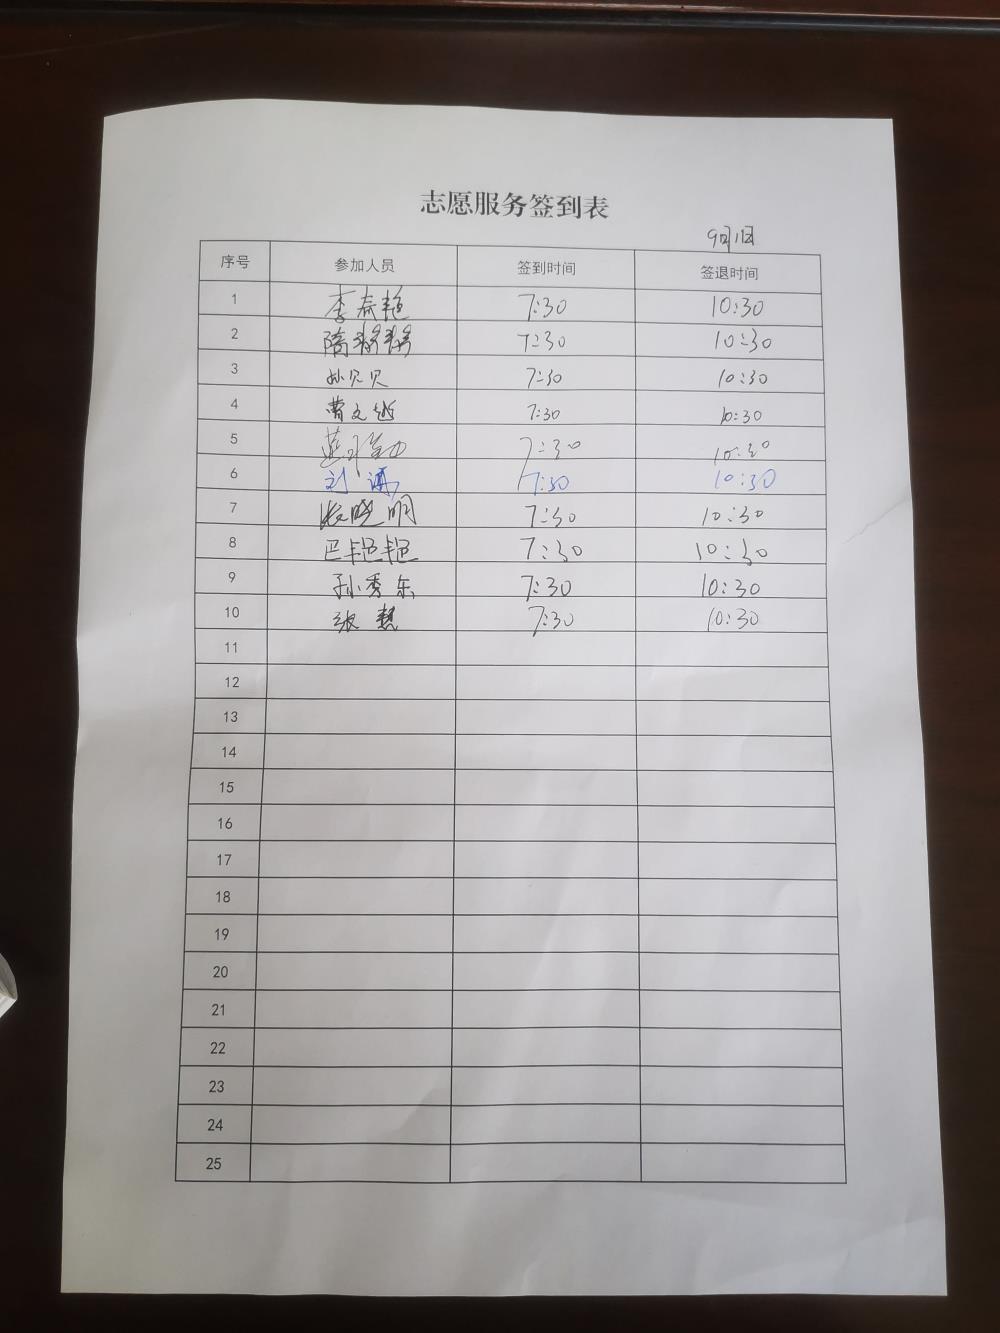 志愿服务签到表
9月11日
序号 参加人员 签到时间 签退时间
1 李春艳 7:30 10:30
2 隋 7:30 10:30
3 孙贝贝 7:30 10:30
4 曹文 7:30 10:30
5 7:30 10:30
6 刘 7:30 10:30
7 张晓明 7:30 10:30
8 巴艳艳 7:30 10:30
9 孙秀东 7:30 10:30
10 张慧 7:30 10:30
11
12
13
14
15
16
17
18
19
20
21
22
23
24
25